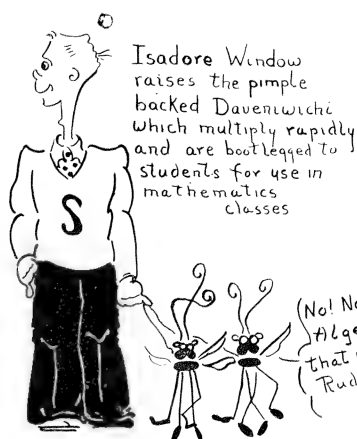 Isadore Window
raises the pimple
backed Daveniwichi
which multiply rapidly
and are bootlegged to
students for use in
mathematics
classes
S
No!